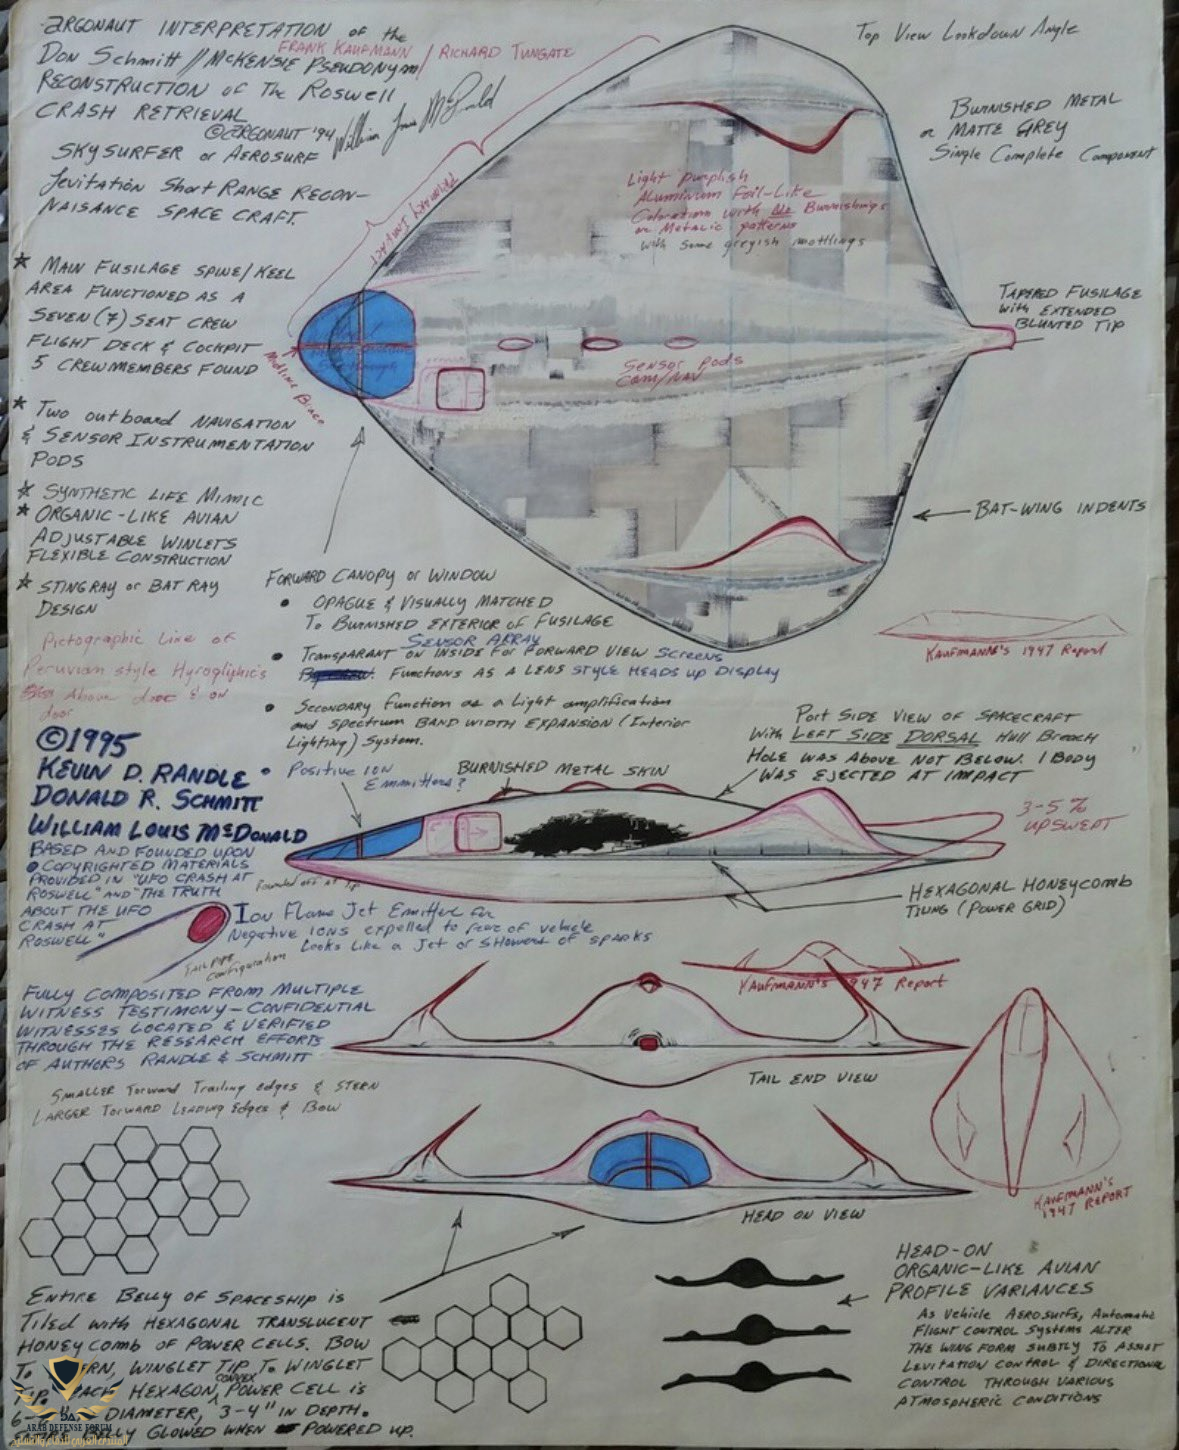 ARGONAUT INTERPRETATION of the
Don Schmitt // McKENSIE PSEUDONYM/
FRANK KAUFMANN / RICHARD TUNGATE
RECONSTRUCTION of The Roswell
CRASH RETRIEVAL
© ARGONAUT '94
SKYSURFER or AEROSURF
Levitation Short RANGE RECON-
NAISANCE SPACE CRAFT.
★ MAIN FUSILAGE SPINE/KEEL
AREA FUNCTIONED AS A
SEVEN (7) SEAT CREW
FLIGHT DECK & COCKPIT
5 CREWMEMBERS FOUND
★ Two outboard NAVIGATION
& SENSOR INSTRUMENTATION
PODS
★ SYNTHETIC LIFE MIMIC
★ ORGANIC-LIKE AVIAN
ADJUSTABLE WINLETS
FLEXIBLE CONSTRUCTION
★ STINGRAY or BAT RAY
DESIGN
Pictographic Line of
Peruvian style Hyrogliphic's
Above door & on
door
©1995
KEVIN D. RANDLE
DONALD R. SCHMITT
WILLIAM LOUIS McDONALD
BASED AND FOUNDED UPON
COPYRIGHTED MATERIALS
PROVIDED IN "UFO CRASH AT
ROSWELL" AND "THE TRUTH
ABOUT THE UFO
CRASH AT
ROSWELL"
Top View Lookdown Angle
BURNISHED METAL
or MATTE GREY
Single Complete Component
Light purplish
Aluminum foil-Like
Coloration with All Burnishings
or Metalic patterns
with some greyish mottlings
PRIMARY IMPACT
Midline Brace
SENSOR PODS
COM/NAV
TAPERED FUSILAGE
with EXTENDED
BLUNTED TIP
BAT-WING INDENTS
KAUFMANN'S 1947 Report
FORWARD CANOPY or WINDOW
• OPAGUE & VISUALLY MATCHED
To BURNISHED EXTERIOR of FUSILAGE
SENSOR ARRAY
• TRANSPARANT ON INSIDE For FORWARD VIEW SCREENS
FUNCTIONS AS A LENS STYLE HEADS UP DISPLAY
• Secondary Function as a Light amplification
and Spectrum BAND WIDTH EXPANSION (Interior
Lighting) System.
• Positive ION
Emmitters?
BURNISHED METAL SKIN
Port SIDE VIEW OF SPACECRAFT
With LEFT SIDE DORSAL Hull Breach
HOLE WAS ABOVE NOT BELOW. 1 BODY
WAS EJECTED AT IMPACT
3-5%
UPSWEPT
Rounded off at tip
HEXAGONAL HONEYCOMB
TILING (POWER GRID)
Ion Flame Jet Emitter for
Negative IONS expelled to rear of vehicle
Looks Like a Jet or SHOWERS of SPARKS
TAIL PIPE
Configuration
FULLY COMPOSITED FROM MULTIPLE
WITNESS TESTIMONY - CONFIDENTIAL
WITNESSES LOCATED & VERIFIED
THROUGH THE RESEARCH EFFORTS
OF AUTHORS RANDLE & SCHMITT
KAUFMANN'S 1947 Report
TAIL END VIEW
SMALLER Toward Trailing edges & STERN
LARGER Toward Leading Edges & Bow
HEAD ON VIEW
KAUFMANN'S
1947 REPORT
ENTIRE Belly of Spaceship is
Tiled with HEXAGONAL TRANSLUCENT
HONEYCOMB OF POWER CELLS. BOW
To WINGLET TIP To WINGLET
HEXAGON, CONVEX POWER CELL is
DIAMETER, 3-4" IN DEPTH.
BELLY GLOWED WHEN POWERED UP.
HEAD-ON
ORGANIC-LIKE AVIAN
PROFILE VARIANCES
As Vehicle AEROSURFS, Automatic
Flight CONTROL Systems ALTER
THE WING FORM SUBTLY To ASSIST
LEVITATION CONTROL & DIRECTIONAL
CONTROL THROUGH VARIOUS
ATMOSPHERIC CONDITIONS
ARAB DEFENSE FORUM